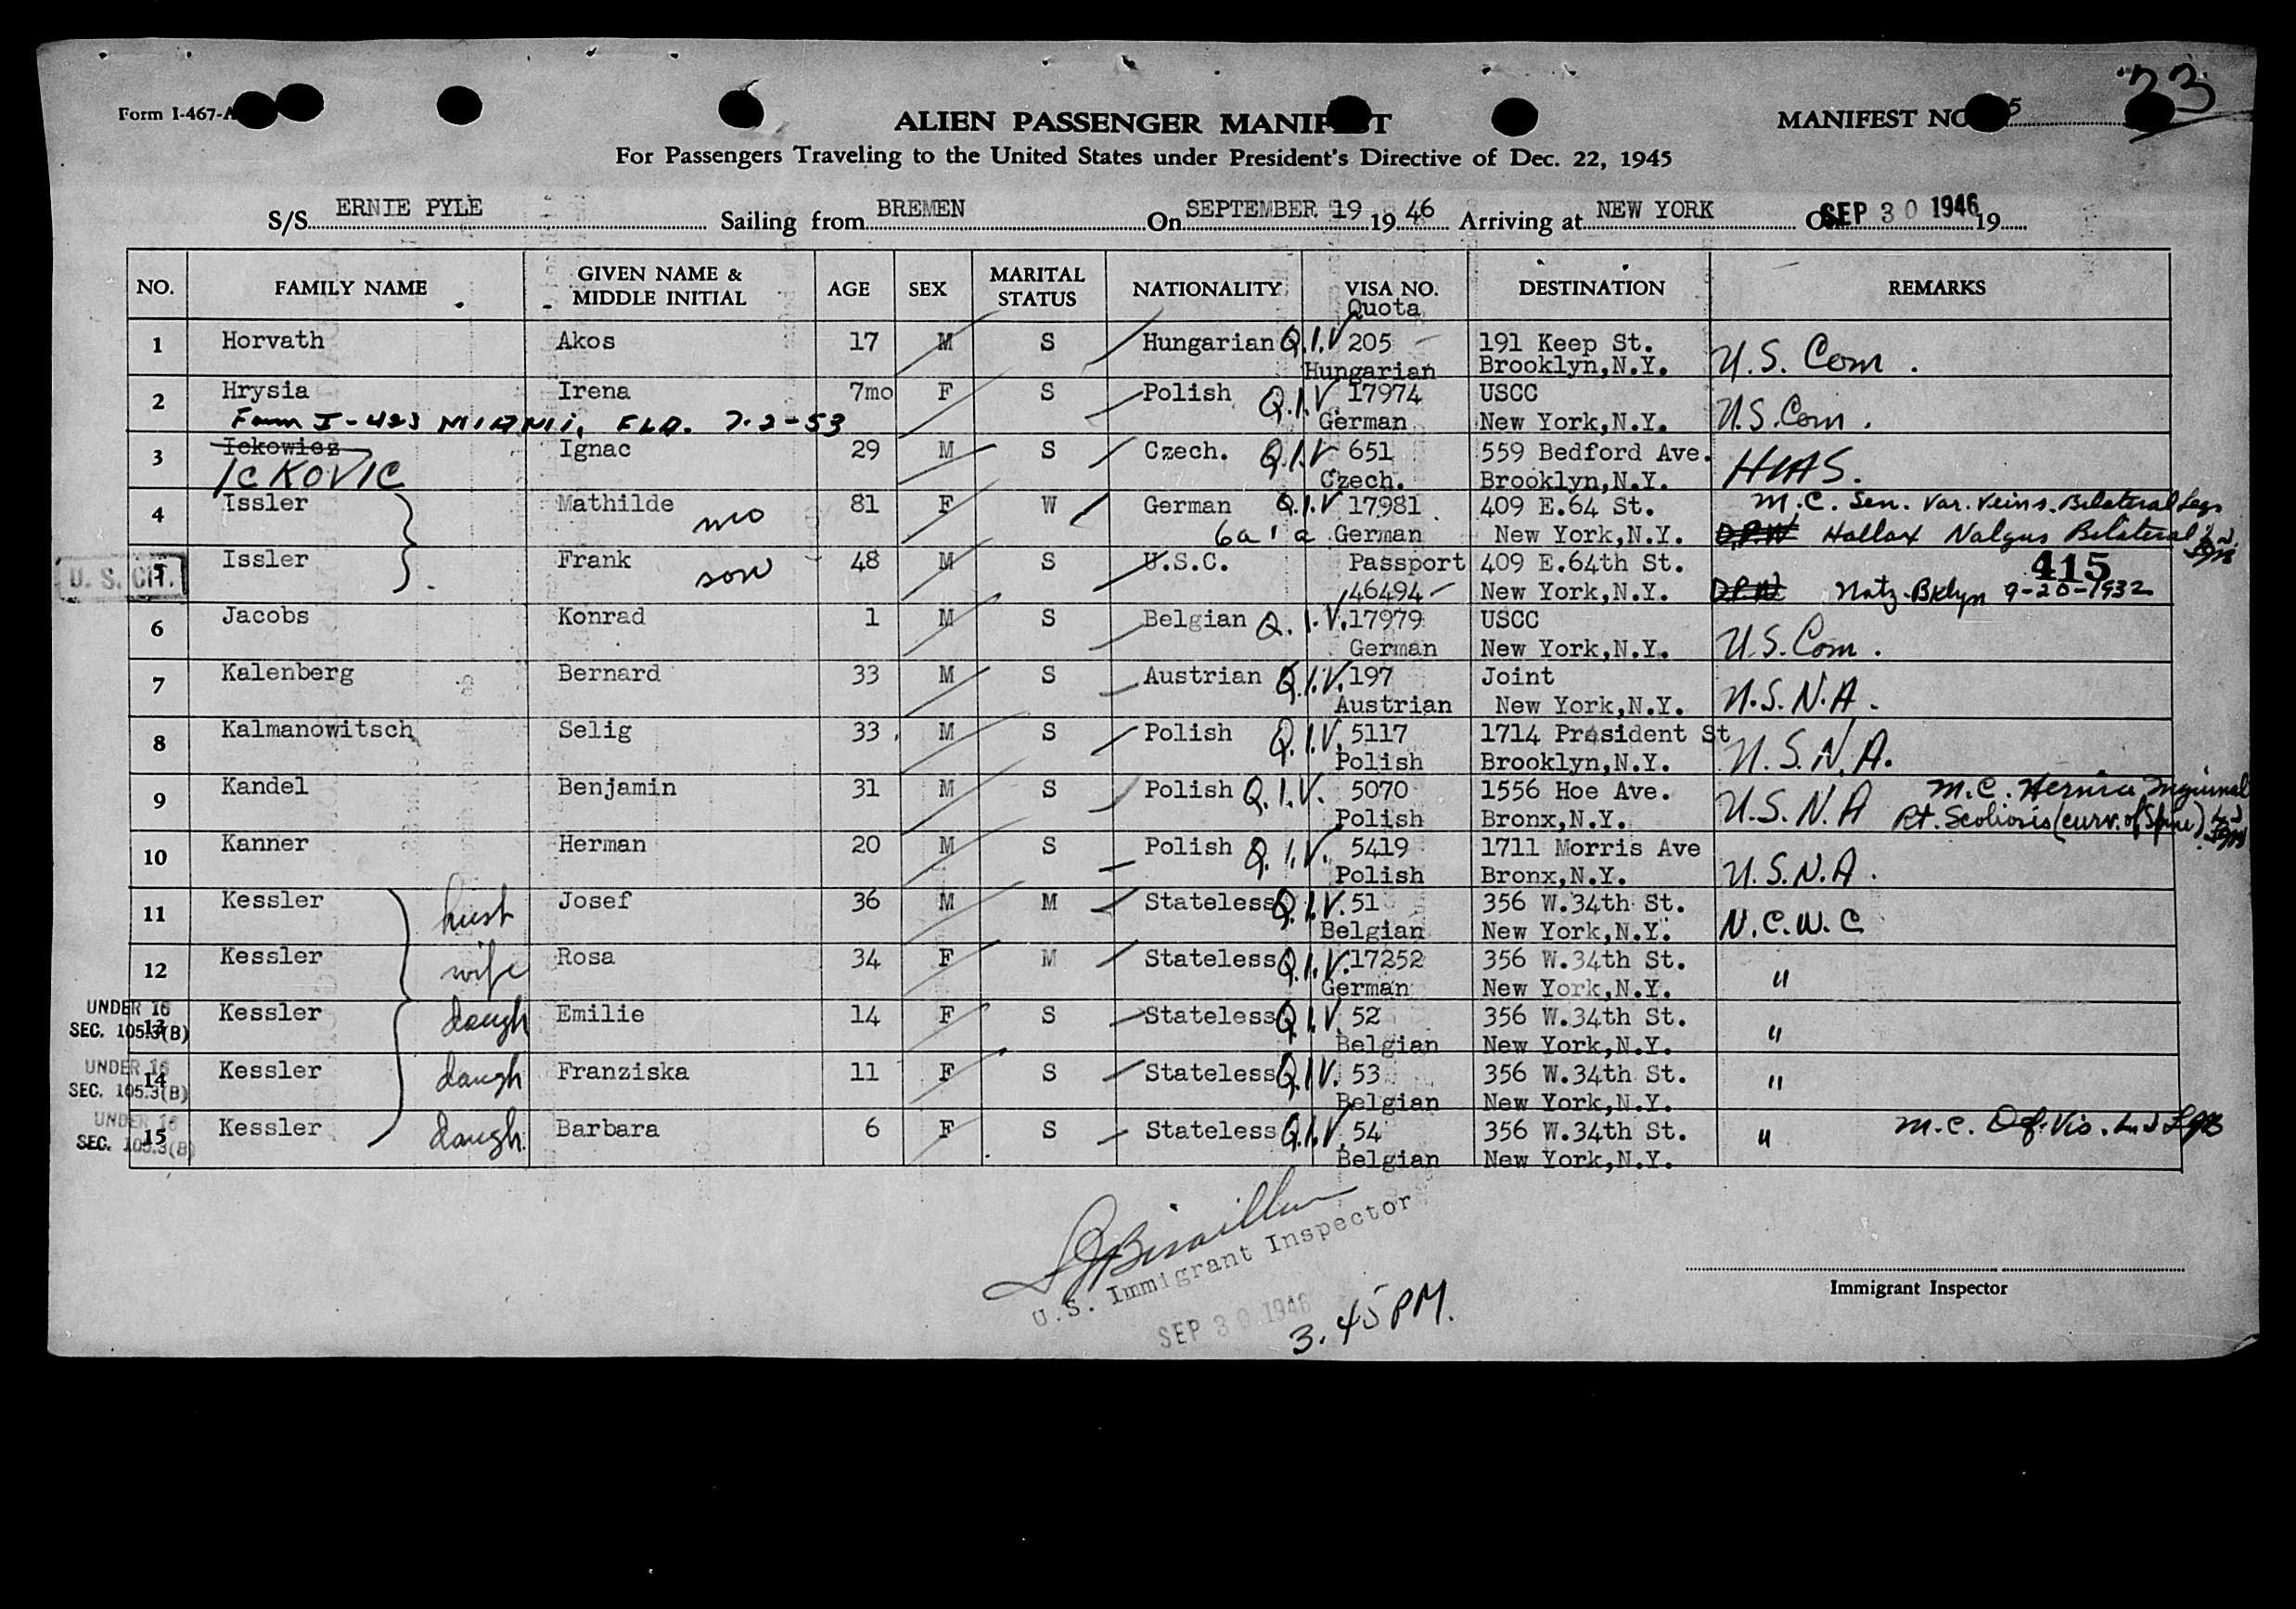 23
Form I-467-A
ALIEN PASSENGER MANIFEST
MANIFEST NO. 5
For Passengers Traveling to the United States under President's Directive of Dec. 22, 1945
S/S ERNIE PYLE Sailing from BREMEN On SEPTEMBER 19 19 46 Arriving at NEW YORK On SEP 30 1946 19
NO. FAMILY NAME GIVEN NAME & MIDDLE INITIAL AGE SEX MARITAL STATUS NATIONALITY VISA NO. DESTINATION REMARKS
Quota
1 Horvath Akos 17 M S Hungarian Q.I.V 205 191 Keep St.
Hungarian Brooklyn,N.Y. U.S. Com.
2 Hrysia Irena 7mo F S Polish Q.I.V 17974 USCC
Form I-423 MIAMI, FLA. 7-2-53 German New York,N.Y. U.S. Com.
3 Ickowicz Ignac 29 M S Czech. Q.I.V 651 559 Bedford Ave.
ICKOVIC Czech. Brooklyn,N.Y. HIAS.
4 Issler Mathilde mo 81 F W German Q.I.V 17981 409 E.64 St. M.C. Sen. Var. Veins. Bilateral Legs
6a1a German New York,N.Y. D.P.W Hallax Valgus Bilateral
U. S. CIT. 5 Issler Frank son 48 M S U.S.C. Passport 409 E.64th St. 415
46494 New York,N.Y. D.P.W Natz-Bklyn 9-20-1932
6 Jacobs Konrad 1 M S Belgian Q.I.V. 17979 USCC
German New York,N.Y. U.S. Com.
7 Kalenberg Bernard 33 M S Austrian Q.I.V. 197 Joint
Austrian New York,N.Y. U.S.N.A.
8 Kalmanowitsch Selig 33 M S Polish Q.I.V. 5117 1714 President St
Polish Brooklyn,N.Y. U.S.N.A.
9 Kandel Benjamin 31 M S Polish Q.I.V. 5070 1556 Hoe Ave. M.C. Hernia Inguinal
Polish Bronx,N.Y. U.S.N.A Rt. Scoliosis (curv. of Spine)
10 Kanner Herman 20 M S Polish Q.I.V. 5419 1711 Morris Ave
Polish Bronx,N.Y. U.S.N.A.
11 Kessler hust Josef 36 M M Stateless Q.I.V. 51 356 W.34th St.
Belgian New York,N.Y. N.C.W.C
12 Kessler wife Rosa 34 F M Stateless Q.I.V. 17252 356 W.34th St.
German New York,N.Y. "
UNDER 16
SEC. 105.3(B) 13 Kessler daugh Emilie 14 F S Stateless Q.I.V. 52 356 W.34th St.
Belgian New York,N.Y. "
UNDER 16
SEC. 105.3(B) 14 Kessler daugh Franziska 11 F S Stateless Q.I.V. 53 356 W.34th St.
Belgian New York,N.Y. "
UNDER 16
SEC. 105.3(B) 15 Kessler daugh. Barbara 6 F S Stateless Q.I.V. 54 356 W.34th St. " M.C. Def. Vis.
Belgian New York,N.Y.
U.S. Immigrant Inspector
SEP 30 1946
3.45 PM.
Immigrant Inspector